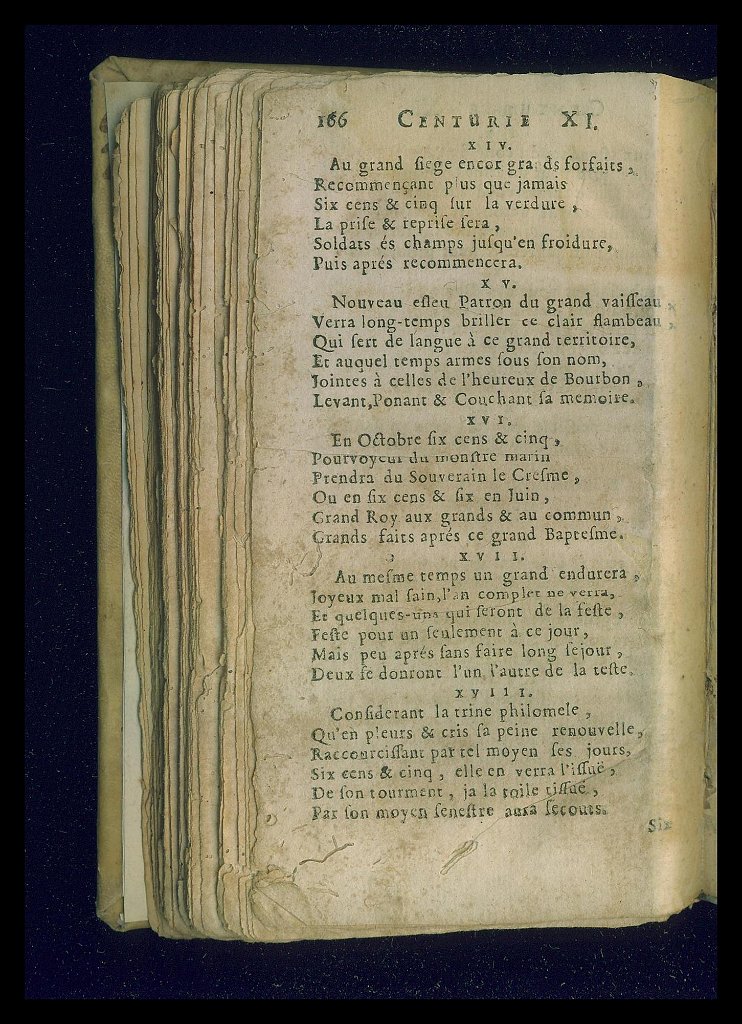 166 CENTURIE XI.
XIV.
Au grand ſiege encor grands forfaits,
Recommençant plus que jamais
Six cens & cinq ſur la verdure,
La priſe & repriſe ſera,
Soldats és champs juſqu'en froidure,
Puis aprés recommencera.
XV.
Nouveau eſleu Patron du grand vaiſſeau,
Verra long-temps briller ce clair flambeau,
Qui ſert de langue à ce grand territoire,
Et auquel temps armes ſous ſon nom,
Jointes à celles de l'heureux de Bourbon,
Levant, Ponant & Couchant ſa memoire.
XVI.
En Octobre ſix cens & cinq,
Pourvoyeur du monſtre marin
Prendra du Souverain le Creſme,
Ou en ſix cens & ſix en Juin,
Grand Roy aux grands & au commun,
Grands faits aprés ce grand Bapteſme.
XVII.
Au meſme temps un grand endurera,
Joyeux mal ſain, l'an complet ne verra,
Et quelques-uns qui ſeront de la feſte,
Feſte pour un ſeulement à ce jour,
Mais peu aprés ſans faire long ſejour,
Deux ſe donront l'un l'autre de la teſte.
XVIII.
Conſiderant la trine philomele,
Qu'en pleurs & cris ſa peine renouvelle,
Raccourciſſant par tel moyen ſes jours,
Six cens & cinq, elle en verra l'iſſuë,
De ſon tourment, ja la toile tiſſuë,
Par ſon moyen ſeneſtre aura ſecours.
Six